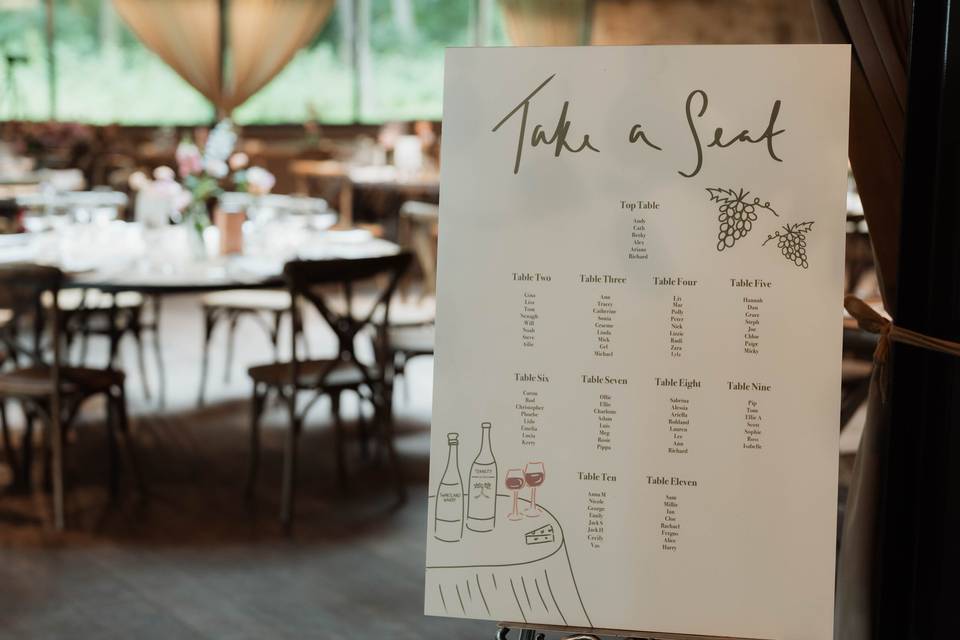 Take a Seat
Top Table
Andy
Cath
Becky
Alex
Ariane
Richard
Table Two
Gina
Lisa
Tom
Will
Noah
Steve
Table Three
Ann
Tracey
Catherine
Sonia
Graeme
Linda
Mick
Gel
Michael
Table Four
Liv
Mar
Polly
Peter
Nick
Lizzie
Rudi
Zara
Lyle
Table Five
Hannah
Dan
Grace
Steph
Joe
Chloe
Paige
Micky
Table Six
Caron
Rod
Christopher
Phoebe
Lido
Emelia
Lucia
Kerry
Table Seven
Ollie
Ellis
Charlotte
Adam
Luis
Meg
Rosie
Pippa
Table Eight
Sabrina
Alessia
Ariella
Ruhland
Lauren
Lee
Ann
Richard
Table Nine
Pip
Tom
Ellie A
Scott
Sophie
Ross
Isabelle
Table Ten
Anna M
Nicole
George
Emily
Jack S
Jack H
Cecily
Vas
Table Eleven
Sam
Millie
Ian
Cloe
Rachael
Fergus
Alice
Harry
WINERY